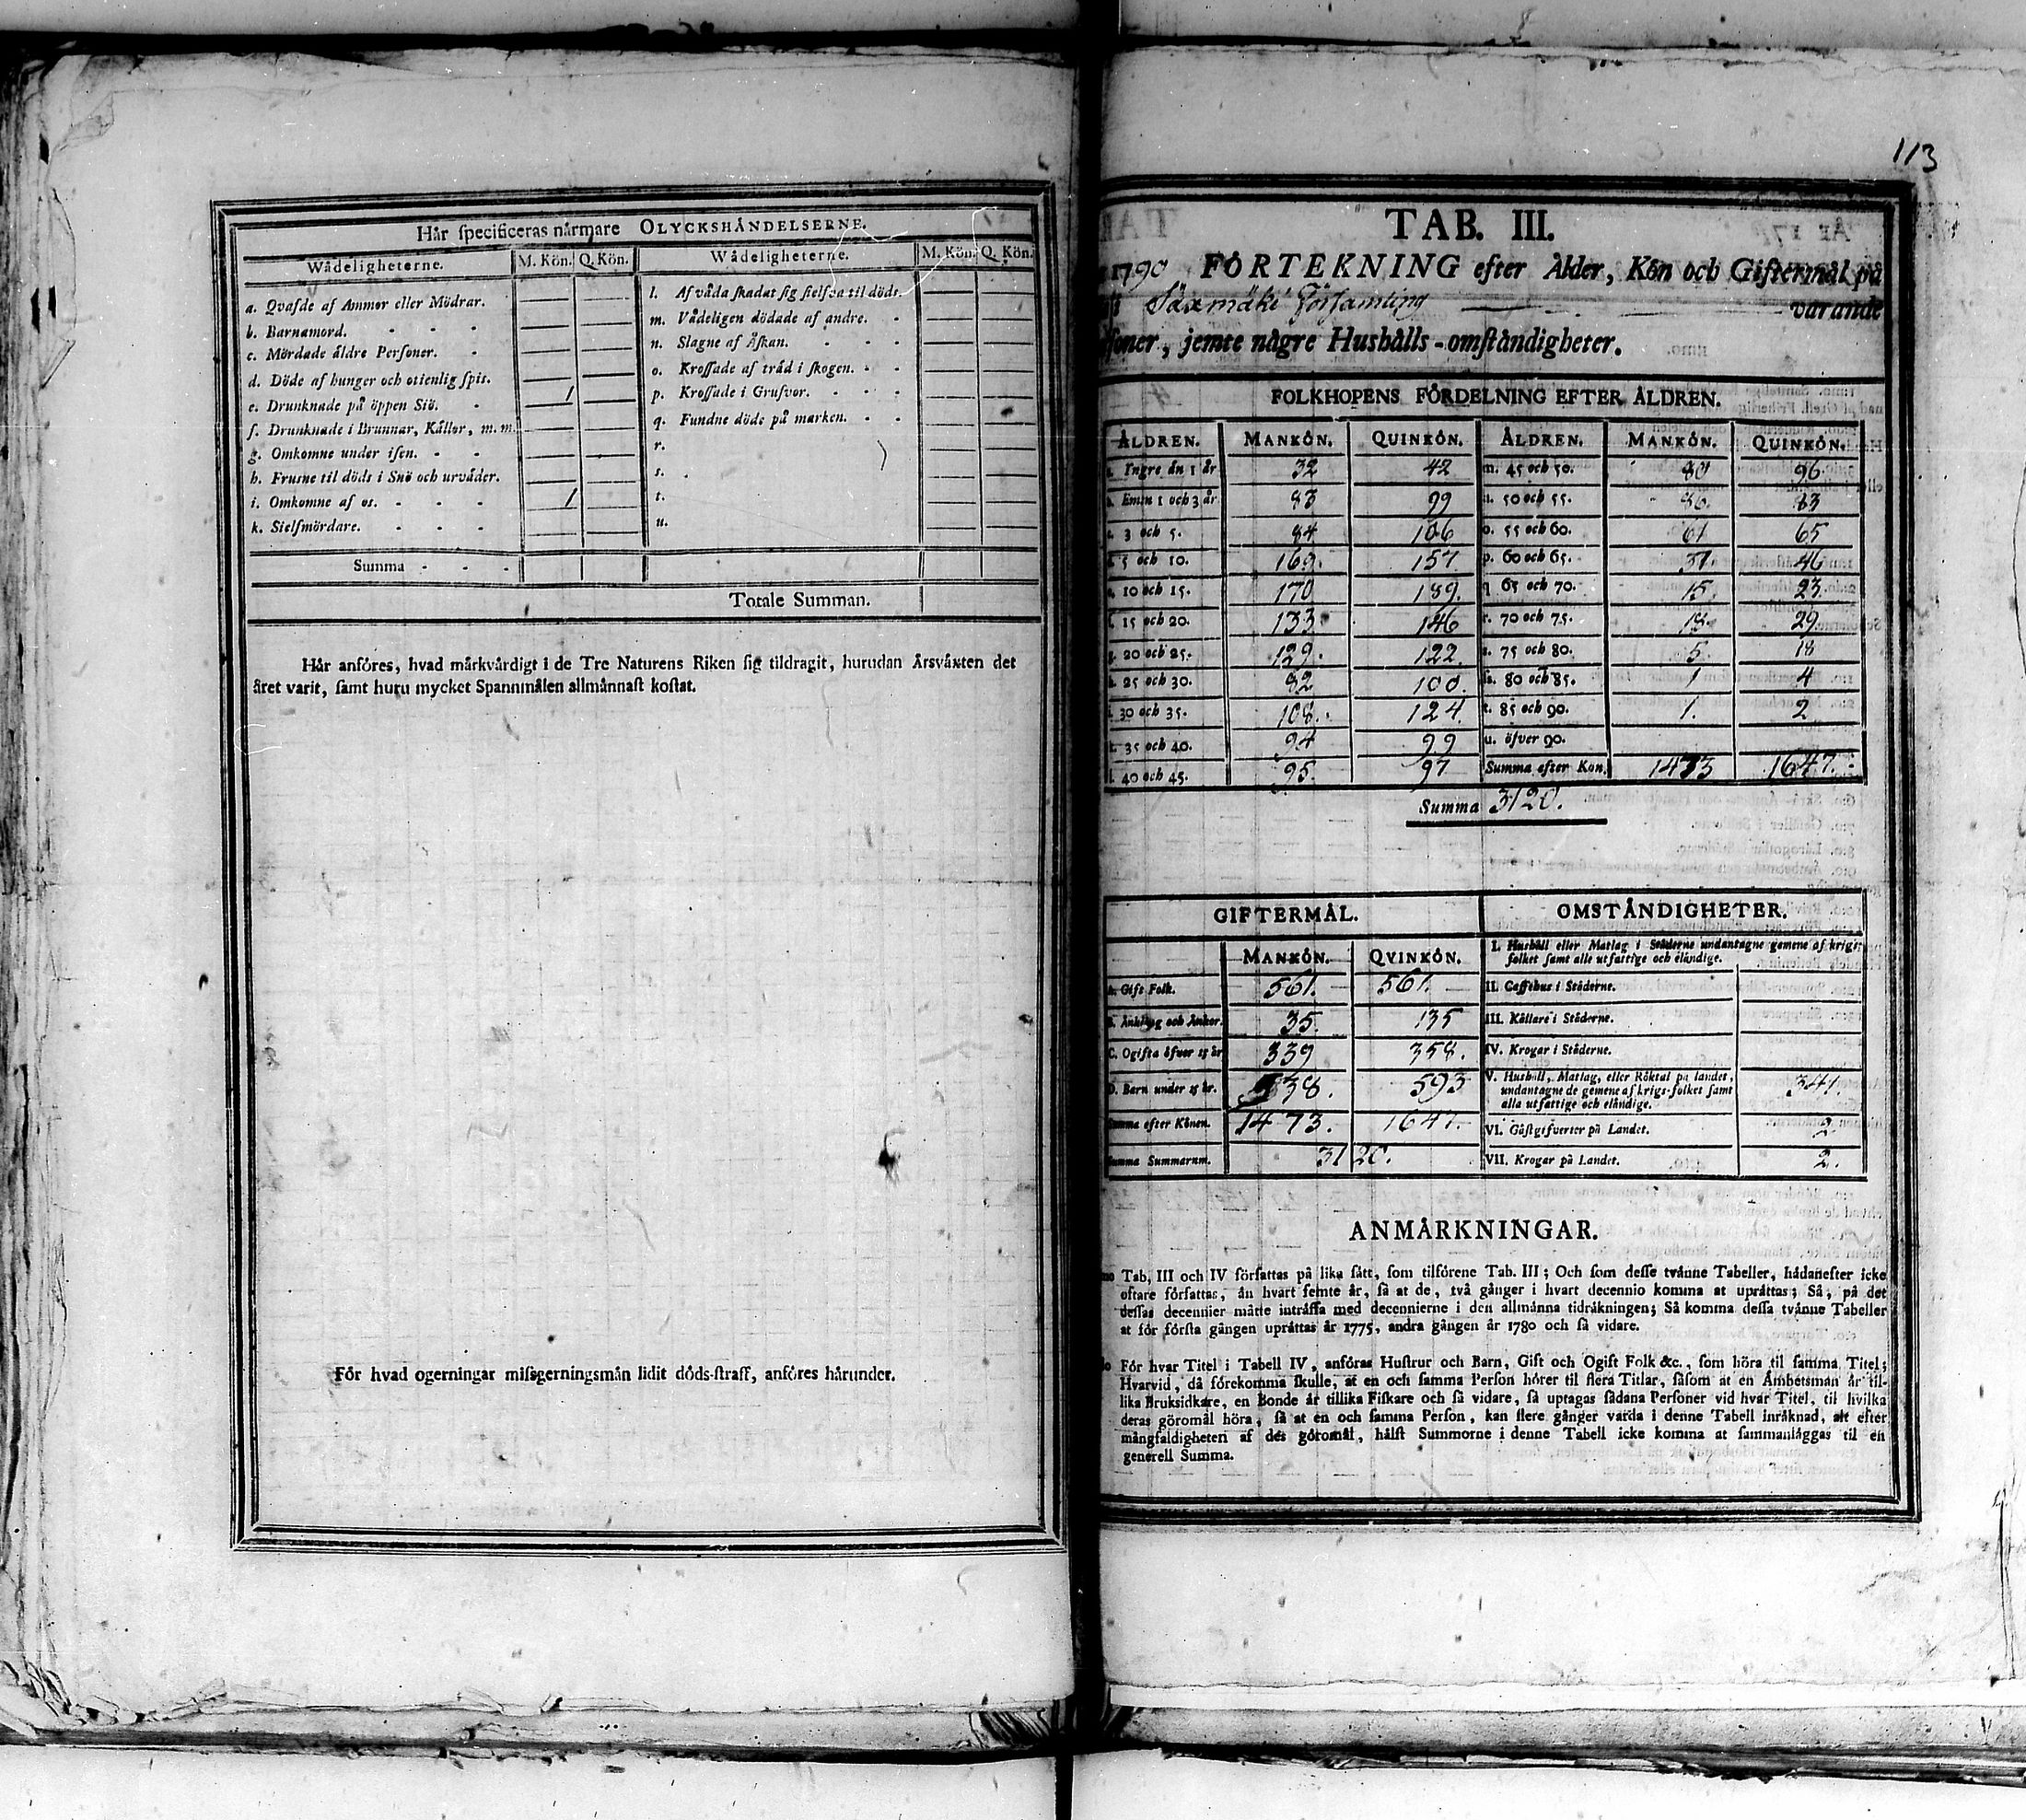 Hår specificeras nårmare OLYCKSHÅNDELSERNE.
Wådeligheterne. M. Kön. Q. Kön. Wådeligheterne. M. Kön. Q. Kön.
a. Qvafde af Ammor eller Mödrar.
b. Barnamord. - - -
c. Mördade åldre Personer. -
d. Döde af hunger och otienlig spis.
e. Drunknade på öppen Siö. - 1
f. Drunknade i Brunnar, Kållor, m. m.
g. Omkomne under isen. - -
h. Frusne til döds i Snö och urvåder.
i. Omkomne af os. - - - 1
k. Sielfmördare. - - -
l. Af våda skadat sig sielfva til döds.
m. Vådeligen dödade af andre. -
n. Slagne af Åskan. - - -
o. Krossade af tråd i skogen. - -
p. Krossade i Grufvor. - - -
q. Fundne döde på marken. - -
r.
s.
t.
u.
Summa - - -
Totale Summan.
Hår anföres, hvad mårkvårdigt i de Tre Naturens Riken sig tildragit, hurudan Årsvåxten det
året varit, samt huru mycket Spannmålen allmånnast kostat.
För hvad ogerningar missgerningsmån lidit döds-straff, anföres hårunder.
113
TAB. III.
1790 FÖRTEKNING efter Ålder, Kön och Giftermål på
Församling varande
soner, jemte någre Hushålls-omståndigheter.
FOLKHOPENS FÖRDELNING EFTER ÅLDREN.
ÅLDREN. MANKÖN. QUINKÖN. ÅLDREN. MANKÖN. QUINKÖN.
Yngre ån 1 år 32 42 m. 45 och 50. 80 96
Emm 1 och 3 år 83 99 n. 50 och 55. 86. 83
3 och 5. 84 106 o. 55 och 60. 61 65
5 och 10. 169. 157 p. 60 och 65. 37. 46
10 och 15. 170 189. q 65 och 70. 15. 23.
15 och 20. 133. 146 r. 70 och 75. 18. 29.
20 och 25. 129. 122. s. 75 och 80. 5. 18
25 och 30. 82 100. ss. 80 och 85. 1 4
30 och 35. 108. 124. t. 85 och 90. 1. 2
35 och 40. 94 99 u. öfver 90.
l. 40 och 45. 95. 97 Summa efter Kon. 1473 1647.
Summa 3120.
GIFTERMÅL.
MANKÖN. QVINKÖN.
Gift Folk. 561. 561.
Ånkling och Ånkor. 35. 135
C. Ogifta öfver 15 år 339 358.
D. Barn under 15 år. 538. 593
Summa efter Könen. 1473. 1647.
Summa Summarum. 3120.
OMSTÅNDIGHETER.
I. Hushåll eller Matlag i Ståderne undantagne gemene af krigs-
folket samt alle utfattige och elåndige.
II. Caffehus i Ståderne.
III. Kållare i Ståderne.
IV. Krogar i Ståderne.
V. Hushåll, Matlag, eller Röktal på landet,
undantagne de gemene af krigs-folket samt
alla utfattige och elåndige. 341.
VI. Gåstgifverier på Landet. 2
VII. Krogar på Landet. 2.
ANMÅRKNINGAR.
Tab. III och IV författas på lika sått, som tilförene Tab. III; Och som desse tvånne Tabeller, hådanefter icke
oftare författas, ån hvart femte år, så at de, två gånger i hvart decennio komma at upråttas; Så, på det
dessas decennier måtte intråffa med decennierne i den allmånna tidråkningen; Så komma dessa tvånne Tabeller
at för första gången upråttas år 1775, andra gången år 1780 och så vidare.
För hvar Titel i Tabell IV, anföras Hustrur och Barn, Gift och Ogift Folk &c., som höra til samma Titel;
Hvarvid, då förekomma skulle, at en och samma Person hörer til flera Titlar, såsom at en Åmbetsman år til-
lika Bruksidkare, en Bonde år tillika Fiskare och så vidare, så uptagas sådana Personer vid hvar Titel, til hvilka
deras göromål höra, så at en och samma Person, kan flere gånger varda i denne Tabell inråknad, alt efter
mångfaldigheten af des göromål, hålst Summorne i denne Tabell icke komma at sammanlåggas til en
generell Summa.